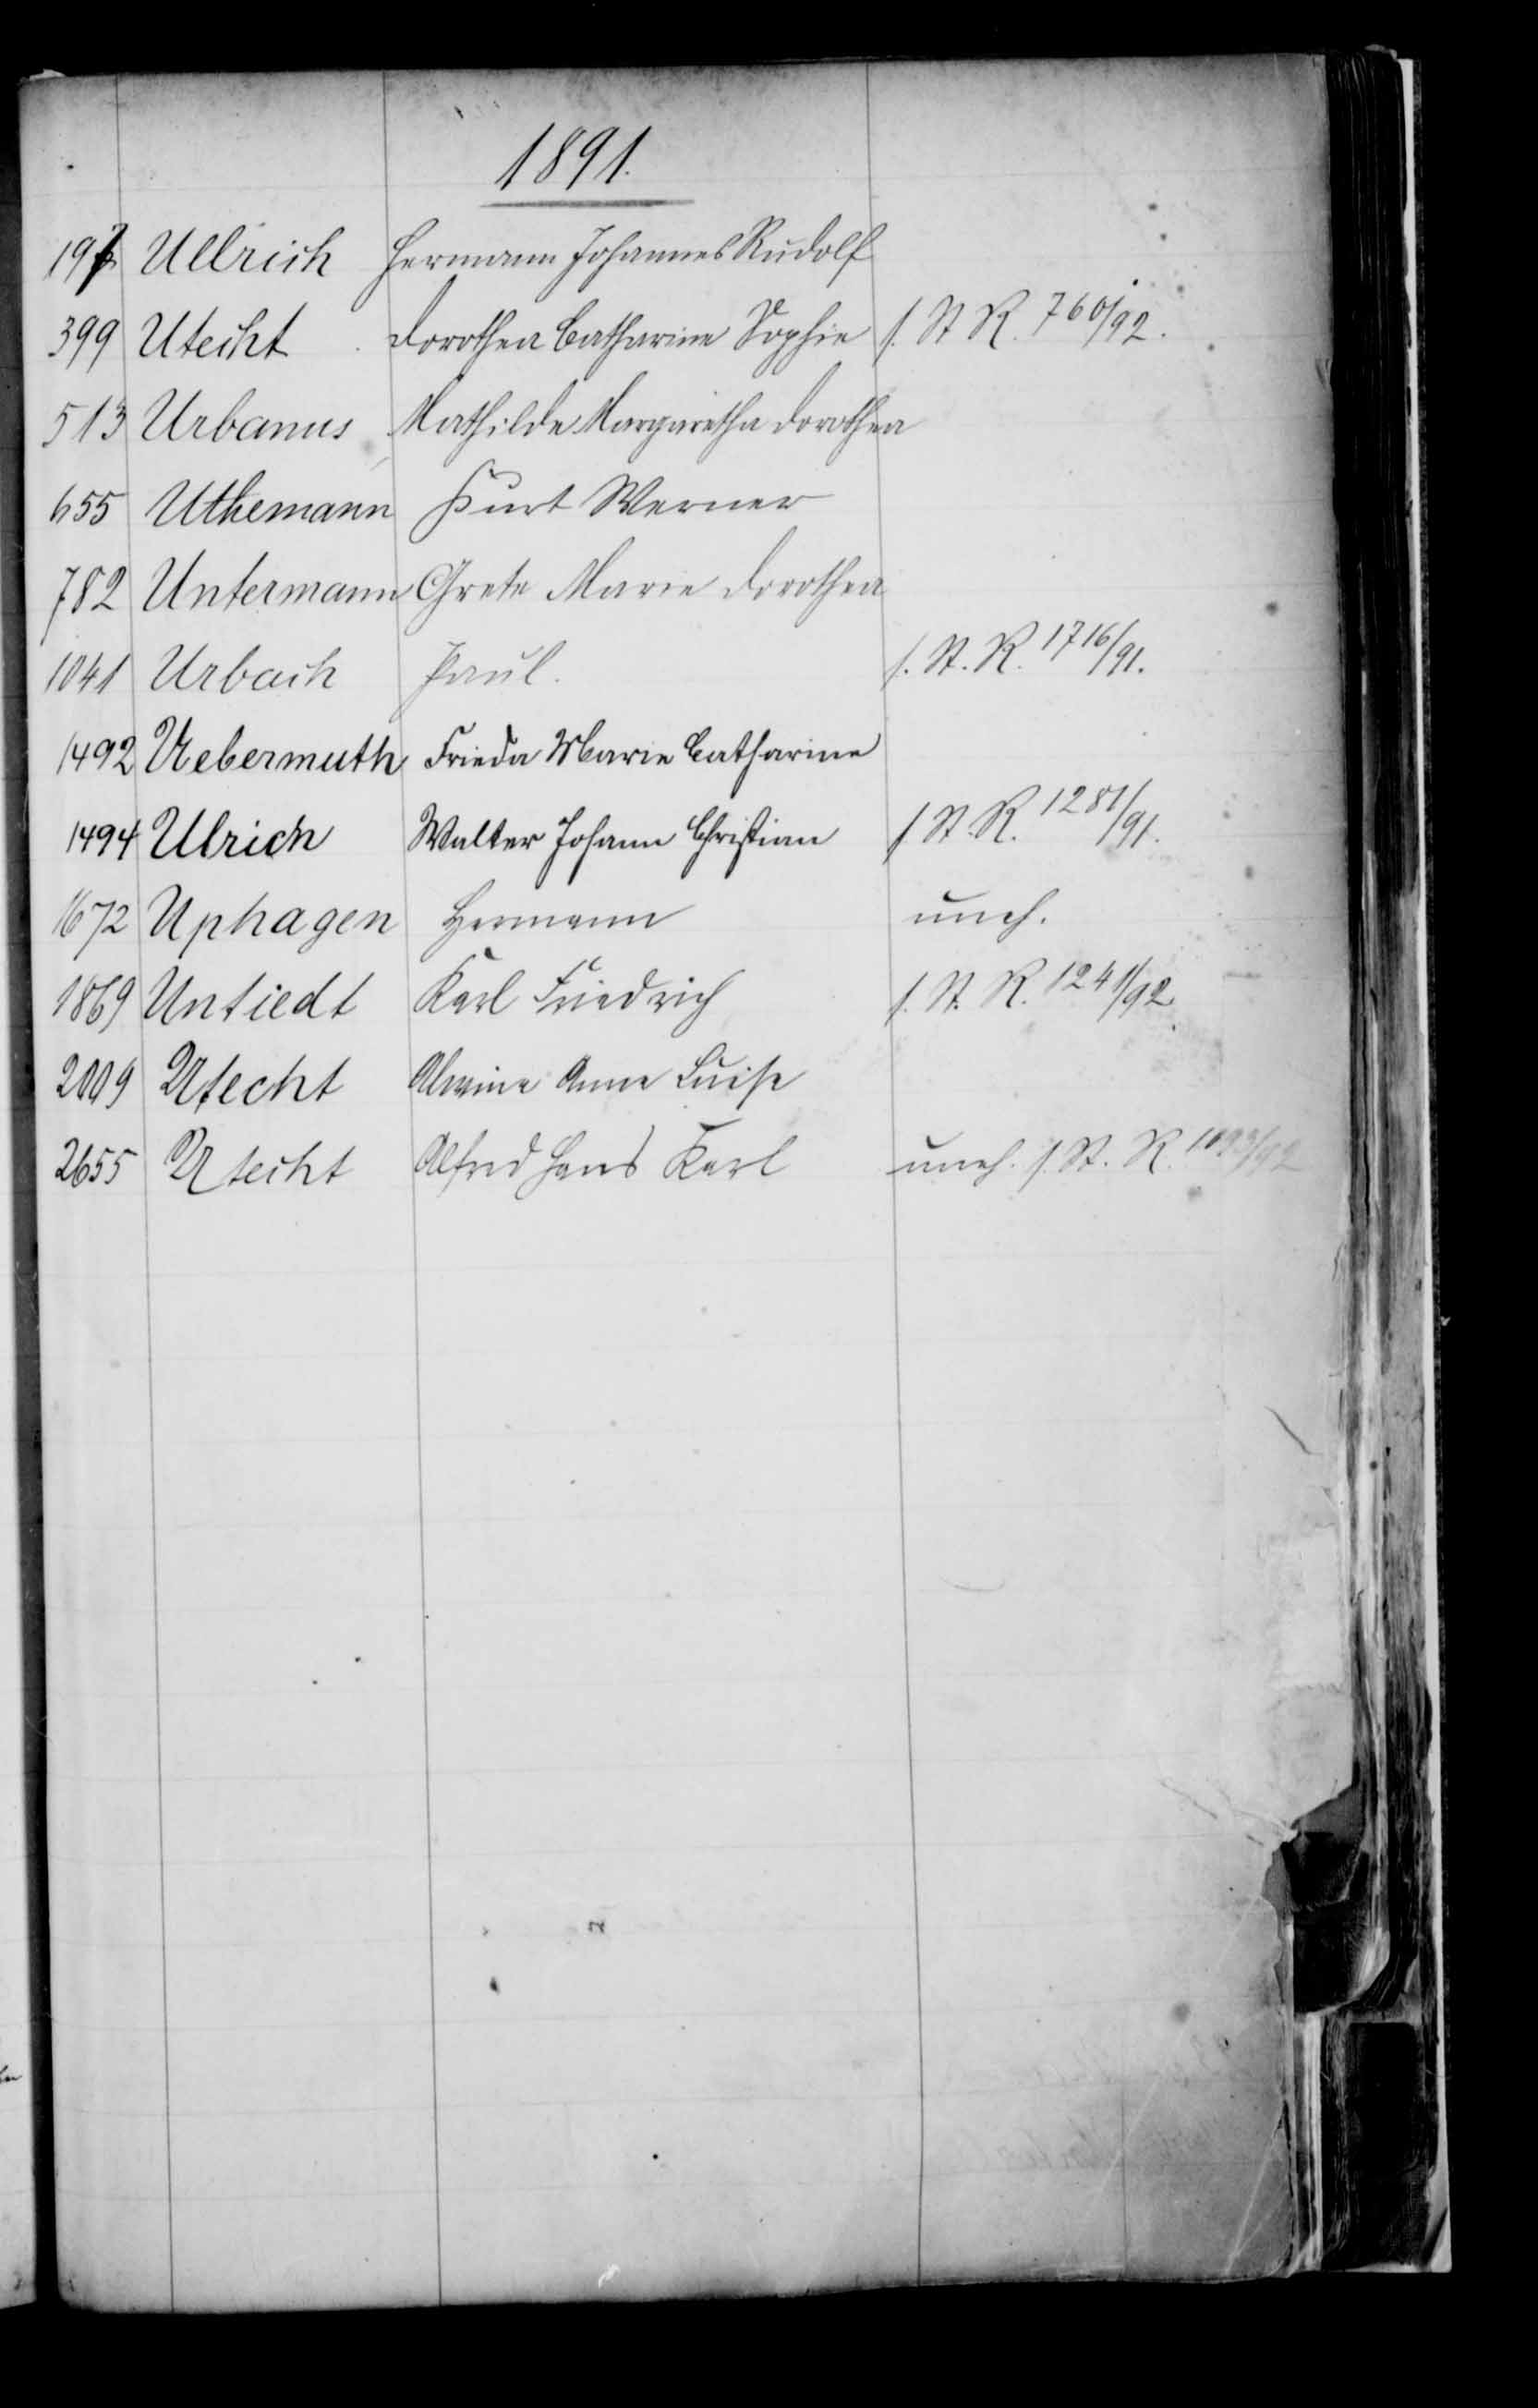 1891.
197 Ullrich Hermann Johannes Rudolf
399 Utecht Dorothea Catharine Sophie s. St. R. 760/92.
513 Urbanus Mathilde Margaretha Dorothea
655 Uthemann Kurt Werner
782 Untermann Grete Marie Dorothea
1041 Urbach Paul. s. St. R. 1716/91.
1492 Uebermuth Frieda Marie Catharine
1494 Ulrich Walter Johann Christian s. St. R. 1281/91.
1672 Uphagen Hermann uneh.
1869 Untiedt Karl Friedrich s. St. R. 1241/92.
2009 Utecht Alwine Anna Luise
2655 Utecht Alfred Hans Karl uneh. s. St. R. 1093/92